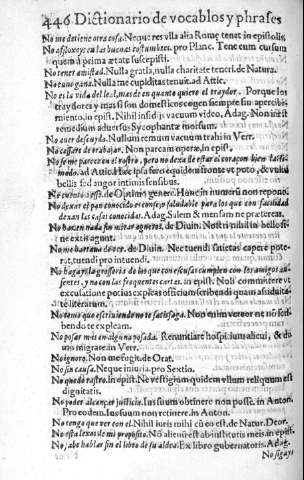 446 Dictionario de vocablos y phrases
No me detiene otra cosa. Neque res vlla alia Romę tenet in epistolis
No afloxeys en las buenas costumbres. pro Planc. Tene eum cursum
quem à prima ætate suscepisti.
No tener amistad. Nulla gratia, nulla charitate teneri. de Natura.
No tuuo gana. Nulla me cupiditas tenuit. ad Attic.
No es la vida del
trayodores y mas si son domesticos cogen siempre sin apercibi
miento, in epist. Nihil insidijs vacuum video, Adag. Non in est
remedium aduersus Sycophantæ morsum.
No auer desnudo. Nullum remum vacuum trahi in Verr.
No cessare de trabajar. Non parcam operæ, in epist.
No se me parece en el rostro, pero no dexa de estar el coraçon
mado, ad Attic. Hæc ipsa fero equidem fronte vt puto, & vultu
bellè: sed angor intimis sensibus.
No cuento esso. de Optimo genere. Hunc in numerū non repono.
No dexar el pan conocido es consejo saludable para los que con facilidad
dexan las casas conocidas. Adag. Salem & mensam ne prætereas.
No hazen nada sin mirar agueros, de Diuin. Nostri nihil in bello si
ne extis agunt.
No me hartaua de ver. de Diuin. Nec tuendi satietas capere pote-
rat, tuendi pro intuendi.
No hagays la grosseria de los que con escusas cumplen con los amigos au
sentes, y no con las frequentes cartas. in epist. Noli committere vt
excusatione potius expleas officium scribendi quam assiduita-
te literarum.
No temo que escriuiendo no te satisfaga. Non enim vereor ne nō scri
bendo te expleam.
No posar mas en alguna posada. Renuntiare hospitium alicui, & do
mo migrare in Verr.
No ignoro. Non me fugit. de Orat.
No sin causa. Neque iniuria. pro Sextio.
No quedo rastro. in epist. Ne vestigium quidem vllum reliquum est
dignitatis.
No poder alcançar justicia. Ius suum obtinere non posse. in Anton.
Pro eodem. Ius suum non retinere. in Anton.
No tengo que ver con el. Nihil iuris mihi cū eo est. de Natur. Deor.
No esta lexos de mi proposito. Nō alienū est ab institutis meis. in epist.
No, abo hablar sin el lobo de su aldea. Ex libro gubernatoris. Adag.
No sigays